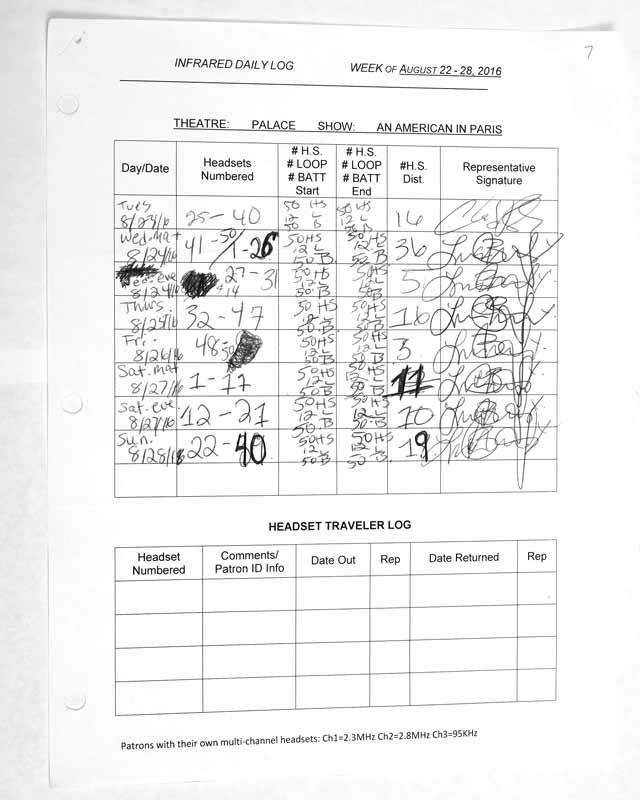 7
INFRARED DAILY LOG WEEK OF AUGUST 22 - 28, 2016
THEATRE: PALACE SHOW: AN AMERICAN IN PARIS
Day/Date Headsets Numbered # H.S. # LOOP # BATT Start # H.S. # LOOP # BATT End #H.S. Dist. Representative Signature
Tues 8/23/16 25-40 50 HS 12 L 50 B 50 HS 12 L 50 B 16
Wed.mat 8/24/16 41-50/1-26 50 HS 12 L 50 B 50 HS 12 L 50 B 36
Wed-eve 8/24/16 27-31 50 HS 12 L 50 B 50 HS 12 L 5
Thurs. 8/25/16 32-47 50 HS 12 L 50 B 50 HS 12 L 50 B 16
Fri. 8/26/16 48-50 50 HS 12 L 50 B 50 HS 12 L 50 B 3
Sat. mat 8/27/16 1-11 50 HS 12 L 50 B 50 HS 12 L 50 B 11
Sat. eve. 8/27/16 12-21 50 HS 12 L 50 B 50 HS 12 L 50 B 10
Sun. 8/28/16 22-40 50 HS 12 L 50 B 50 HS 12 L 50 B 19
HEADSET TRAVELER LOG
Headset Numbered Comments/ Patron ID Info Date Out Rep Date Returned Rep
Patrons with their own multi-channel headsets: Ch1=2.3MHz Ch2=2.8MHz Ch3=95KHz